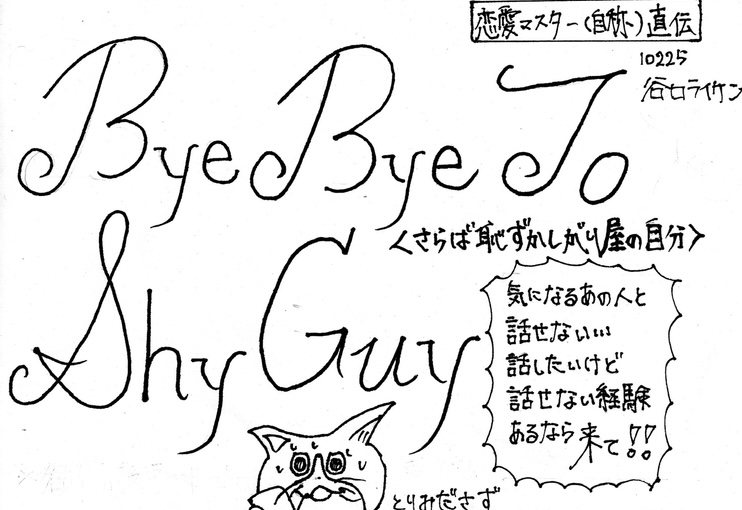 恋愛マスター(自称)直伝
10225
谷口ライケン
Bye Bye To
<さらば恥ずかしがり屋の自分>
Shy Guy
気になるあの人と
話せない…
話したいけど
話せない経験
あるなら来て!!
とりみださず